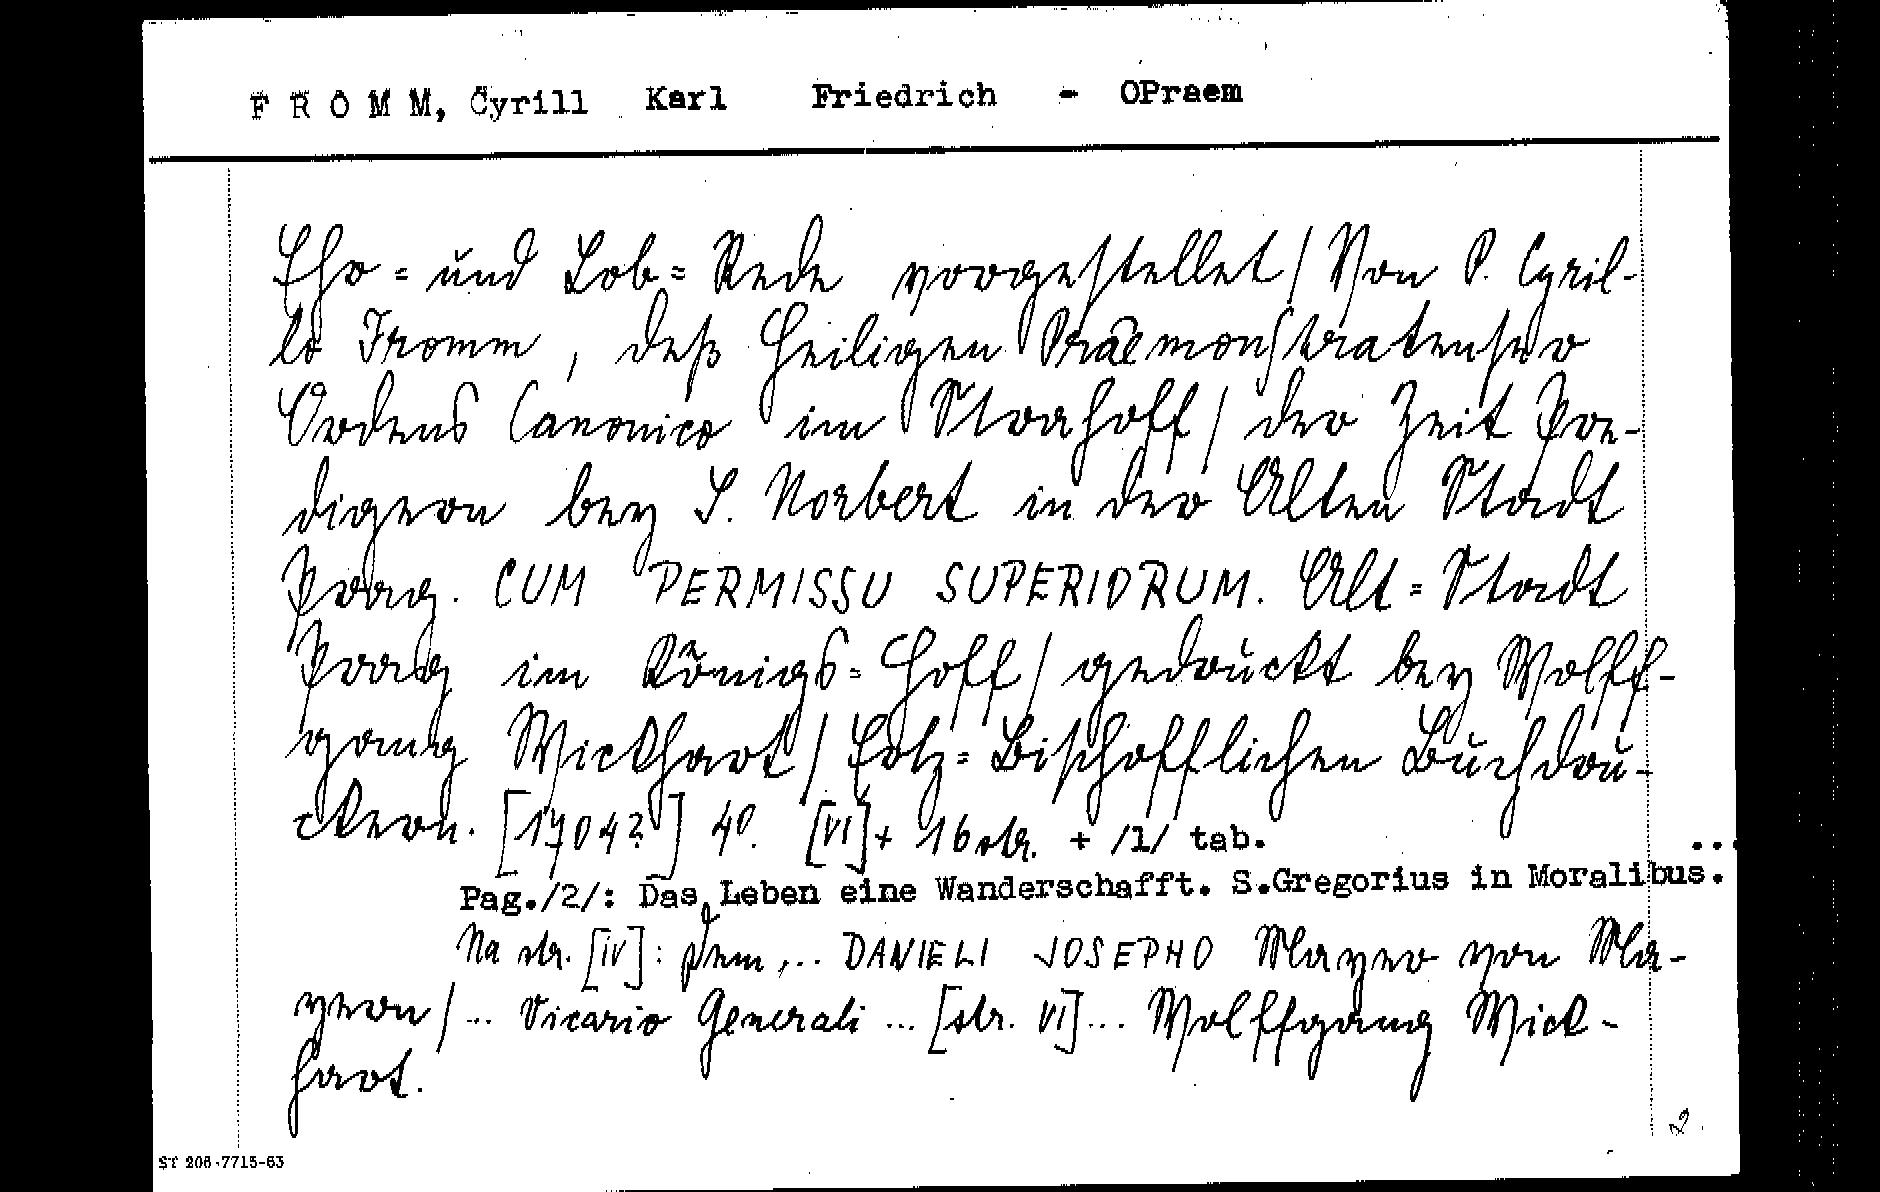 F R O M M, Cyrill Karl Friedrich - OPraem
Ehr= und Lob= Rede vorgestellet / Von P. Cyril-
lo Fromm, deß Heiligen Praemonstratenser
Ordens Canonico im Strahoff / der Zeit Pre-
digern bey S. Norbert in der Alten Stadt
Prag. CUM PERMISSU SUPERIORUM. Alt=Stadt
Prag im Königs=Hoff / gedruckt bey Wolff-
gang Wickhart / Ertz=Bischofflichen Buchdru-
ckern. [1704?] 4°. [VI] + 16 str. + /1/ tab. ...
Pag./2/: Das Leben eine Wanderschafft. S.Gregorius in Moralibus.
Na str. [IV]: Dem ... DANIELI JOSEPHO Mayer von Ma-
yern / ... Vicario Generali ... [str. VI] ... Wolffgang Wick-
hart.
2.
ST 206-7715-63